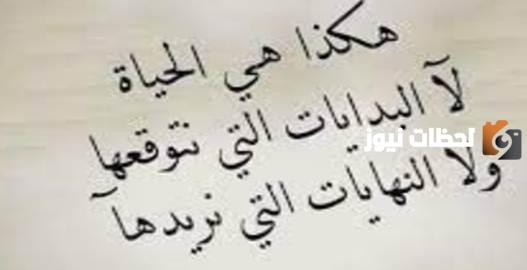 هكذا هي الحياة
لآ البدايات التي نتوقعها
ولا النهايات التي نريدهآ
لحظات نيوز